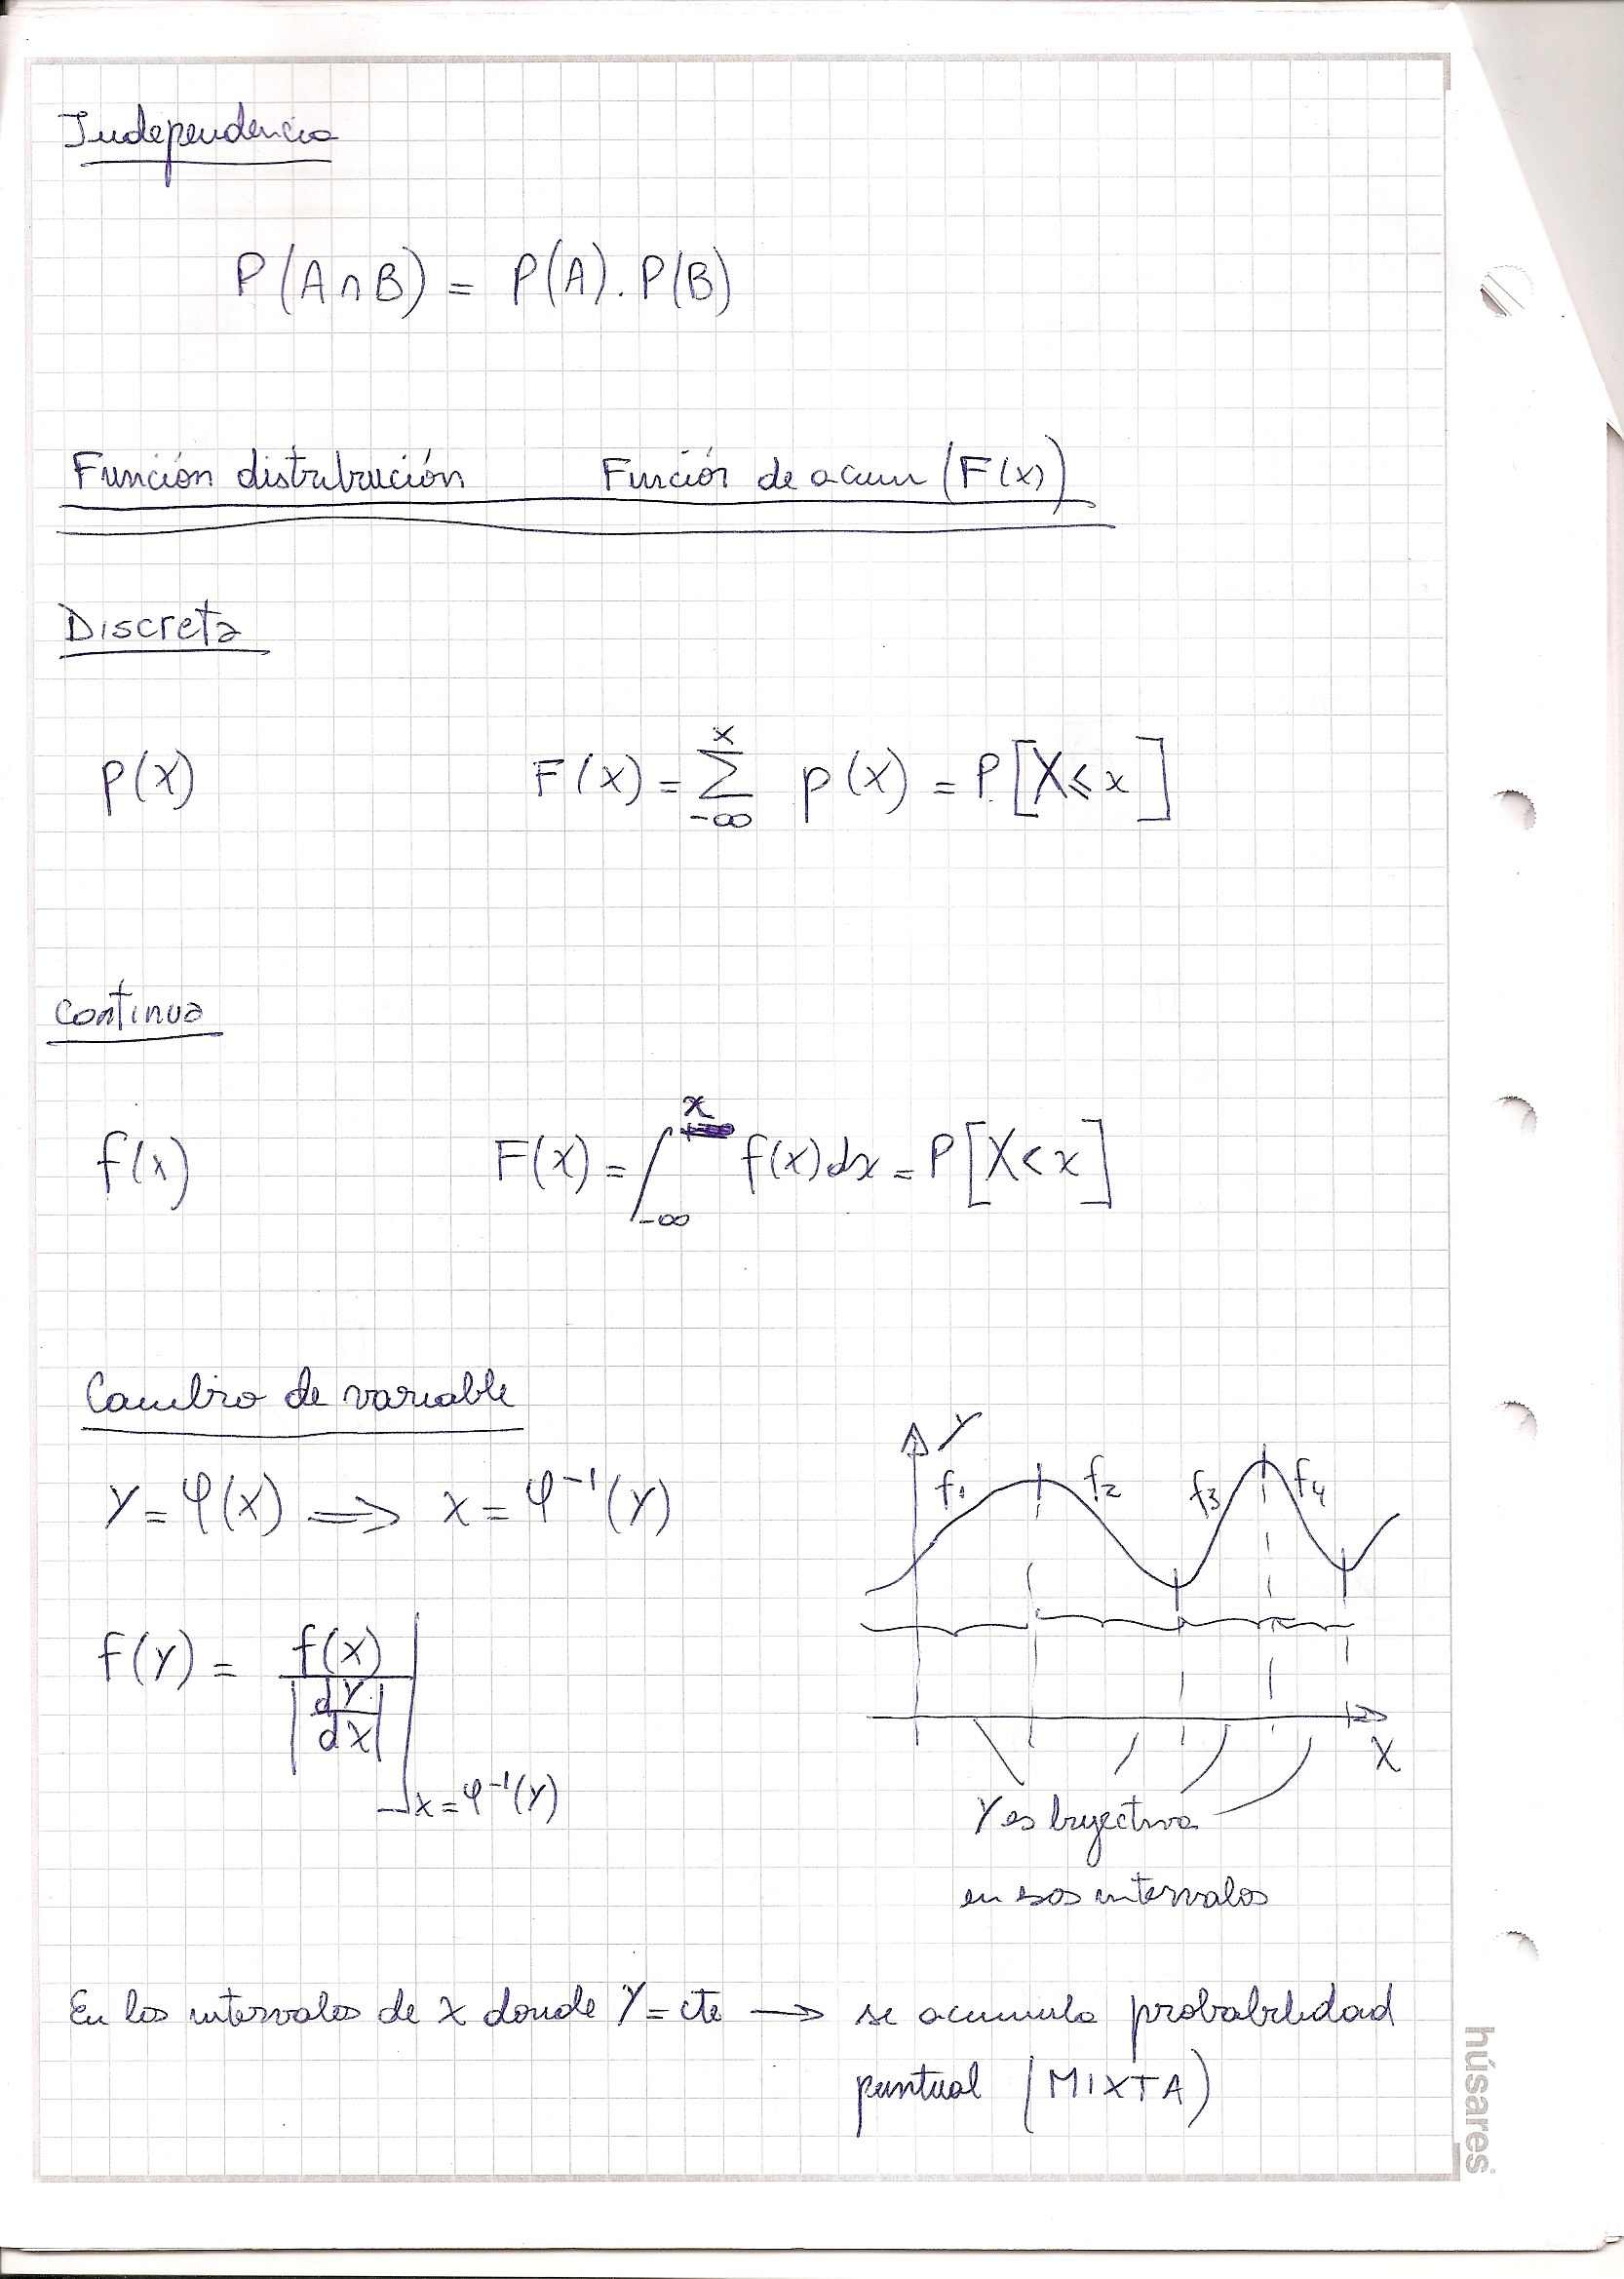 Independencia
P(A∩B) = P(A).P(B)
Función distribución Función de acum (F(x))
Discreta
p(x) F(x) = ∑ₓ₋∞ p(x) = P[X⩽x]
Continua
f(x) F(x) = ∫ₓ₋∞ f(x)dx = P[X<x]
Cambio de variable
Y = φ(X) ⟹ x = φ⁻¹(Y)
f(Y) = f(x) / |dY/dX| | x=φ⁻¹(Y)
Y
f1 f2 f3 f4
X
Y es biyectiva
en esos intervalos
En los intervalos de x donde Y = cte → se acumula probabilidad
puntual (MIXTA)
húsares